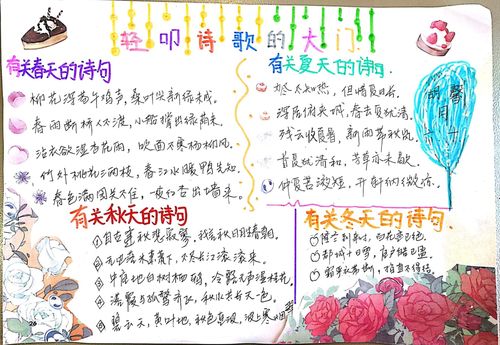 轻叩诗歌的大门
有关春天的诗句
柳花深巷午鸡声,桑叶尖新绿未成。
春雨断桥人不渡,小船撑出绿荫来。
沾衣欲湿杏花雨,吹面不寒杨柳风。
竹外桃花三两枝,春江水暖鸭先知。
春色满园关不住,一枝红杏出墙来。
有关夏天的诗句
深居俯夹城,春去夏犹清。
残云收夏暑,新雨
首夏犹清和,芳草亦未歇。
仲夏苦夜短,开轩纳微凉。
有关秋天的诗句
①自古逢秋悲寂寥,我言秋日胜春朝。
②无边落木萧萧下,不尽长江滚滚来。
③中庭地白树栖鸦,冷露无声湿桂花。
④落霞与孤鹜齐飞,秋水共长天一色。
⑤碧云天,黄叶地,秋色连波,波上寒烟翠
有关冬天的诗句
②都城十日雪,庭户皓已盈。
26